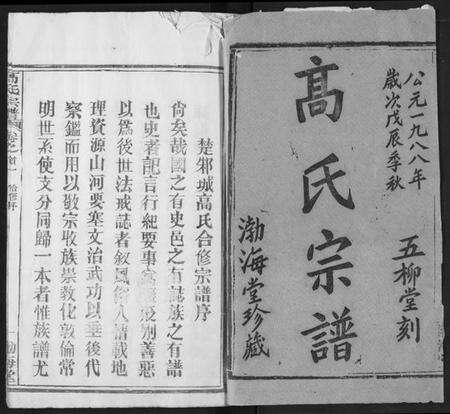 公元一九八八年
歲次戊辰季秋
五柳堂刻
高氏宗譜
渤海堂珍藏
楚邾城高氏合修宗譜序
尚矣哉國之有史邑之有誌族之有譜
也史者記言行紀要事 別善惡
以為後世法戒誌者叙風俗人請載地
理資源山河要塞文治武功以垂後代
察鑑而用以敬宗收族崇教化敦倫常
明世系使支分同歸一本者惟族譜尤
高氏宗譜
卷首一